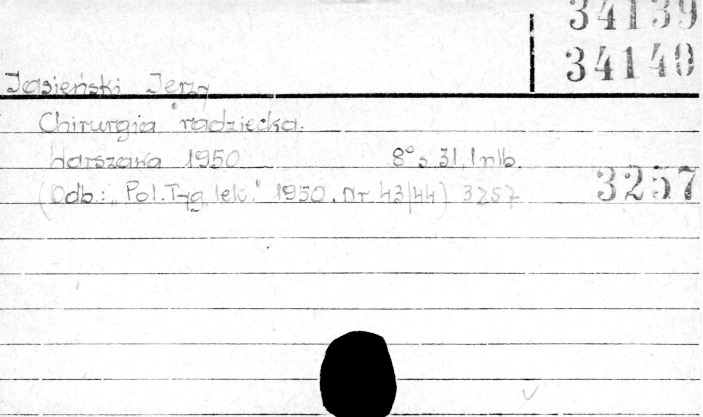 34139
34140
Jasieński Jerzy
Chirurgia radziecka.
Warszawa 1950 8° s. 31, 1 nlb.
(Odb.: „Pol. Tyg. lek." 1950. Nr 43/44) 3257
3257